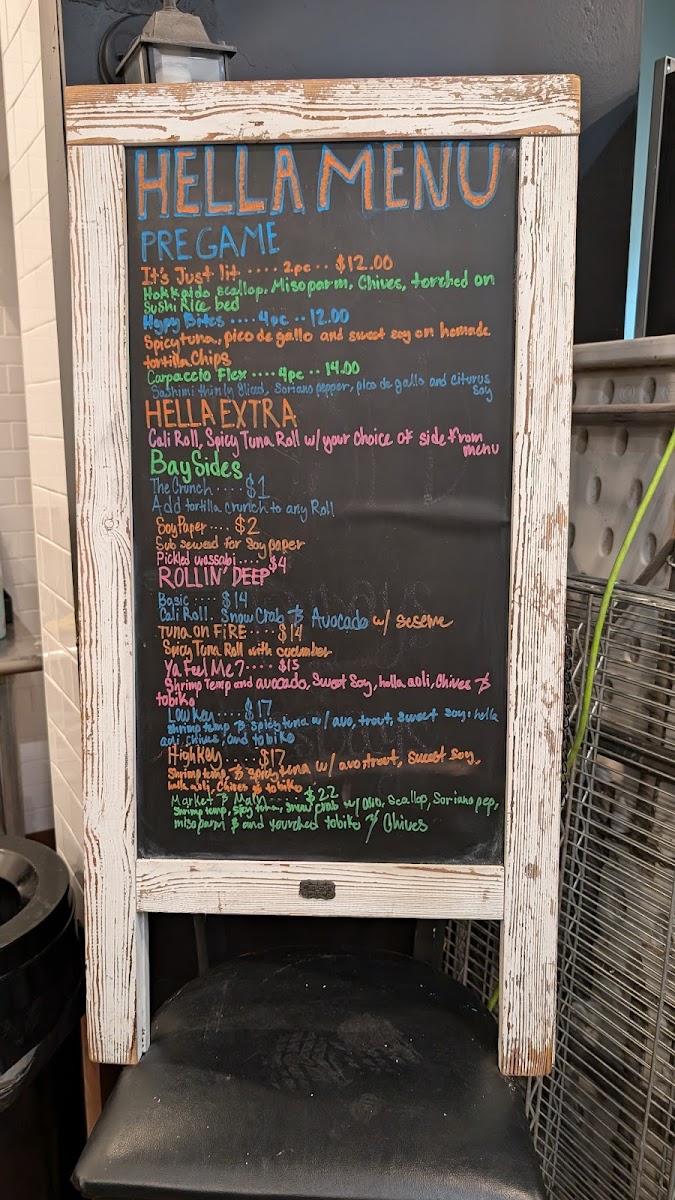 HELLA MENU
PREGAME
It's Just lit .... 2pc .. $12.00
Hokkaido scallop, Miso parm, Chives, torched on
Sushi Rice bed
Hypy Bites .... 4pc .. 12.00
Spicy tuna, pico de gallo and sweet soy on homade
tortilla Chips
Carpaccio Flex .... 4pc .. 14.00
Sashimi thinly sliced, Soriano pepper, pico de gallo and citurus
soy
HELLA EXTRA
Cali Roll, Spicy Tuna Roll w/ your choice of side from
menu
Bay Sides
The Crunch .... $1
Add tortilla crunch to any Roll
Soy Paper .... $2
Sub sewead for Soy paper
Pickled wassabi .... $4
ROLLIN' DEEP
Basic .... $14
Cali Roll. Snow Crab & Avocado w/ seseme
TUNA ON FIRE .... $14
Spicy Tuna Roll with cucumber
Ya Feel Me? .... $15
Shrimp Temp and avocado, Sweet Soy, hella aoli, Chives &
tobiko
Low Key .... $17
Shrimp temp, & Spicy tuna w/ avo, trout, sweet soy, hella
aoli, chives, and tobiko
High Key .... $17
Shrimp temp, & Spicy tuna w/ avo, trout, sweet soy,
hella aoli, Chives & tobiko
Market & Main .... $22
Shrimp temp, Spicy tuna, Snow Crab w/ avo, Scallop, Soriano pep,
miso parm & and tobiko & Chives